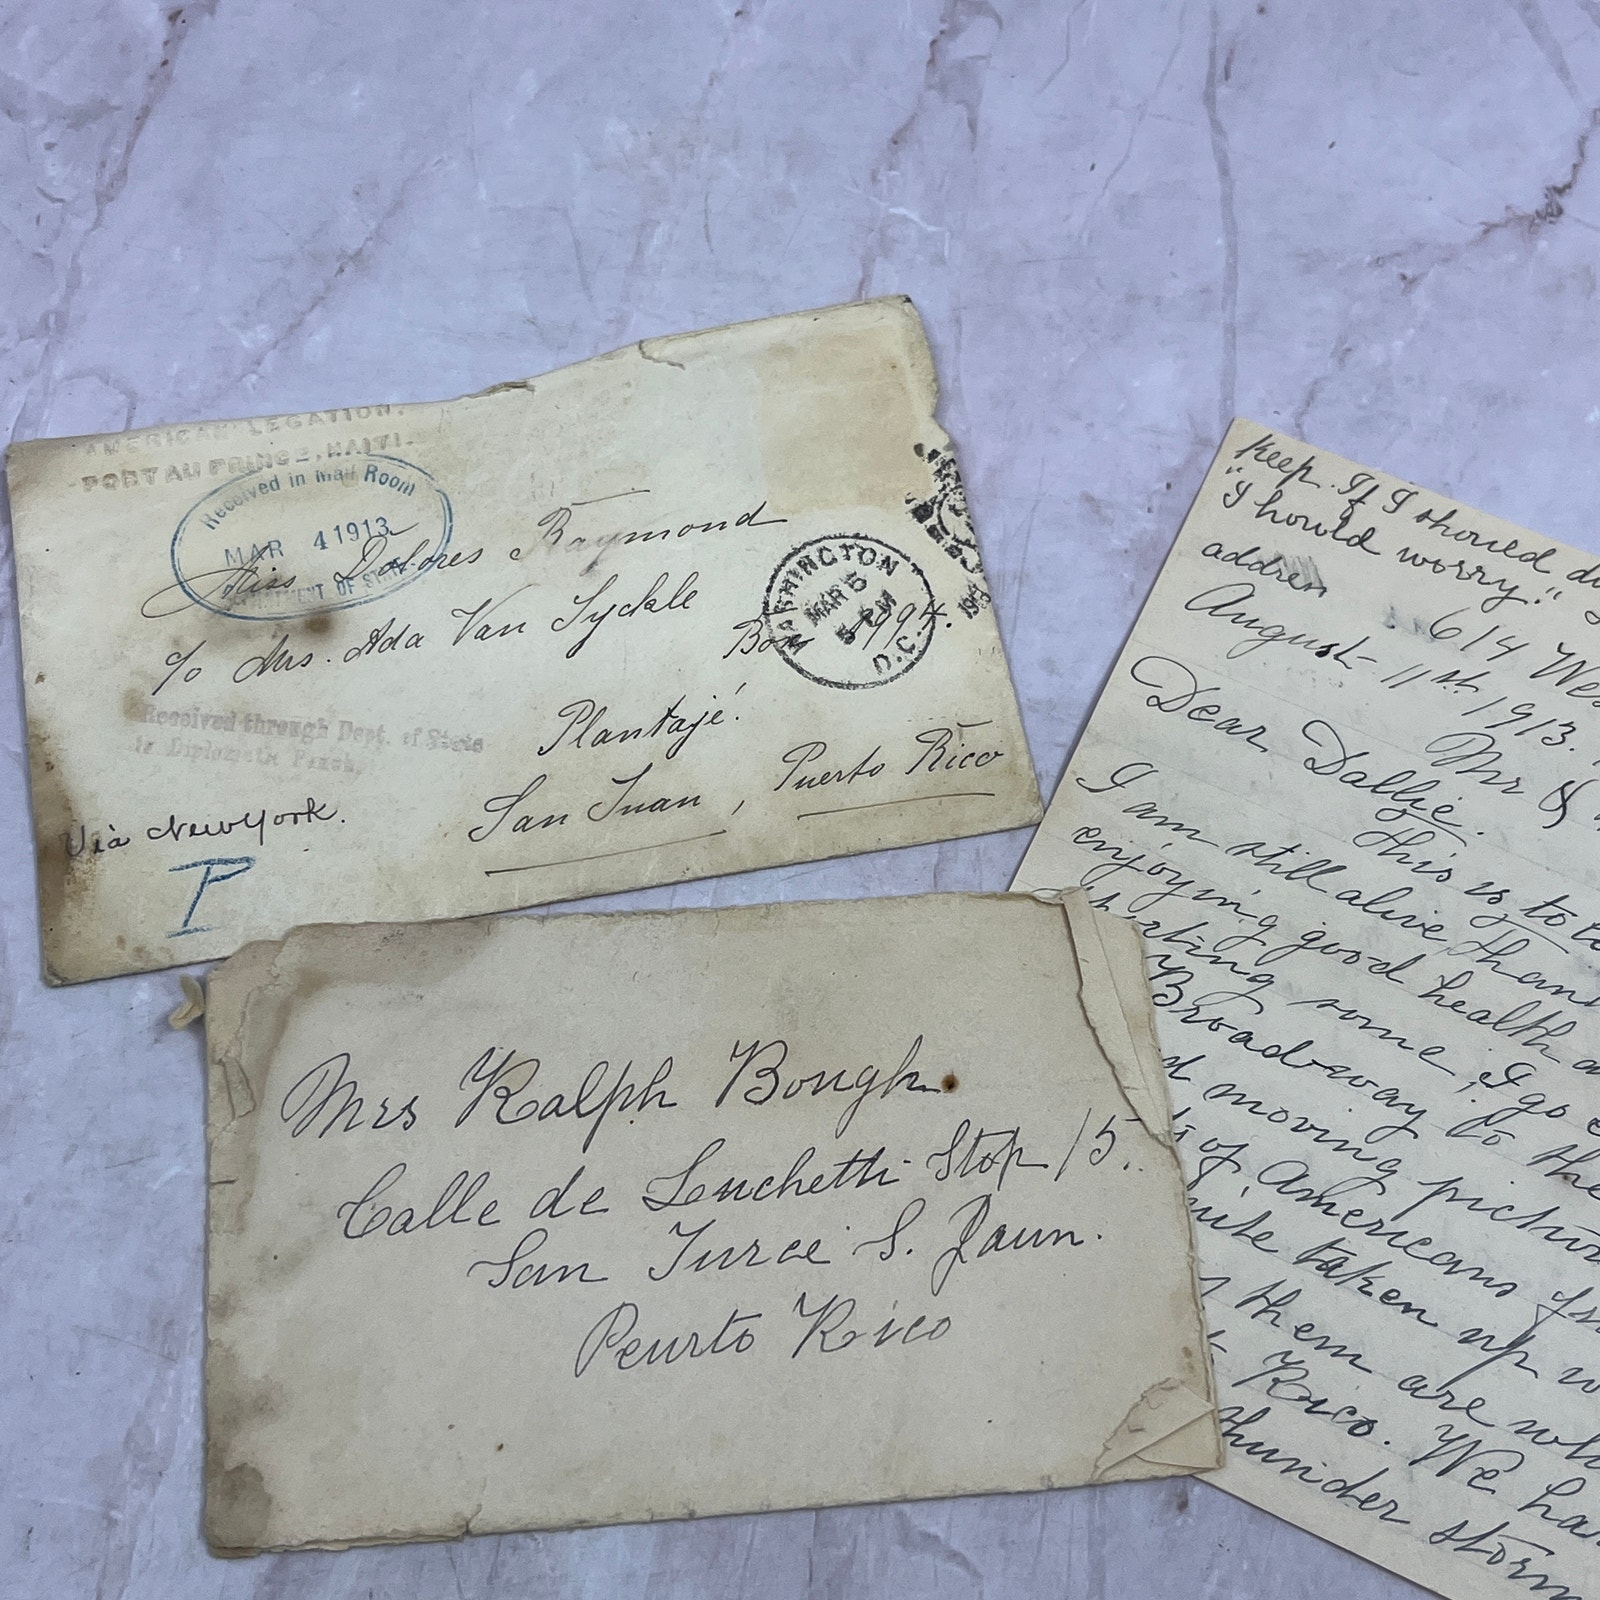 AMERICAN LEGATION.
PORT AU PRINCE, HAITI.
Received in Mail Room
MAR 4 1913
DEPARTMENT OF STATE
Miss Dolores Raymond
c/o Mrs. Ada Van Syckle
Box 1994.
Plantajé.
San Juan, Puerto Rico
WASHINGTON
MAR 5
D.C.
Received through Dept. of State
in Diplomatic Pouch.
Via New York.
P
Mrs Ralph Bough
Calle de Luchetti Stop 15.
San Turce S. Jaun.
Peurto Rico
Keep. If I should di
"I should worry."
address
614 Wes
August 11st, 1913.
Mr &
Dear Dallie.
This is to te
I am still alive
enjoying good health a
some, I go
Broadway to the
moving pictur
of Americans fr
taken up w
them are wh
Rico. We ha
thunder storm